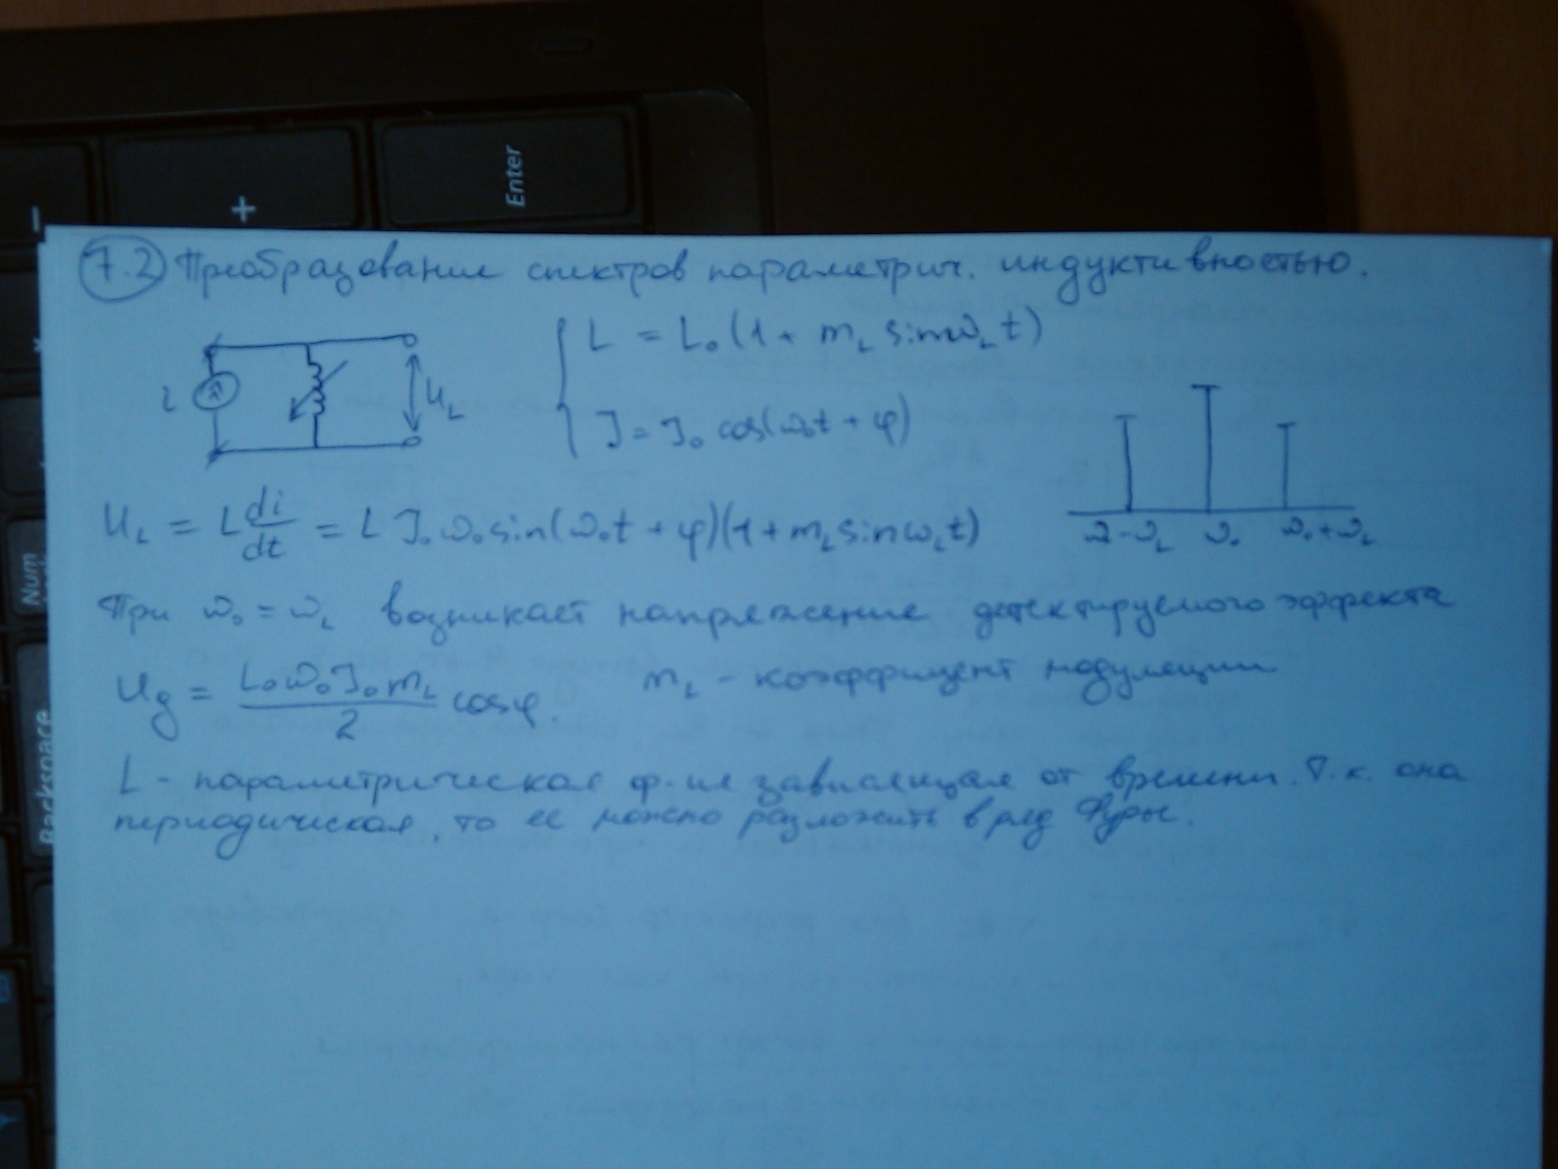 Enter
+
−
Num
Backspace
7.2 Преобразование спектров параметрич. индуктивностью.
L = L₀(1 + m_L sinω_L t)
J = J₀ cos(ω₀t + φ)
i
U_L
U_L = L di/dt = L J₀ω₀sin(ω₀t + φ)(1 + m_L sinω_L t)
ω-ω_L ω₀ ω₀+ω_L
При ω₀ = ω_L возникает напряжение детектируемого эффекта
U_g = L₀ω₀J₀m_L/2 cosφ. m_L - коэффициент модуляции
L - параметрическая ф-ия зависящая от времени. Т.к. она
периодическая, то ее можно разложить в ряд Фурье.